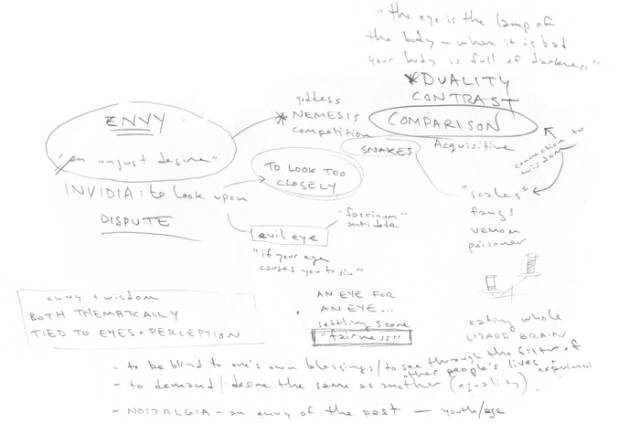 "the eye is the lamp of
the body - when it is bad
your body is full of darkness"
*DUALITY
CONTRAST
COMPARISON
Acquisitive
connection to
wisdom
goddess
*NEMESIS
competition
SNAKES
ENVY
"an unjust desire"
INVIDIA: to look upon
DISPUTE
TO LOOK TOO
CLOSELY
evil eye
"fascinum"
antidote
"if your eye
causes you to sin"
"scales"
fangs
venom
poisoner
envy + wisdom
BOTH THEMATICALLY
TIED TO EYES + PERCEPTION
AN EYE FOR
AN EYE...
settling score
"fairness"
eating whole
LIZARD BRAIN
- to be blind to one's own blessings/to see through the filter of
other people's lives, experience
- to demand/desire the same as another (equality)
- NOSTALGIA - an envy of the past — youth/age